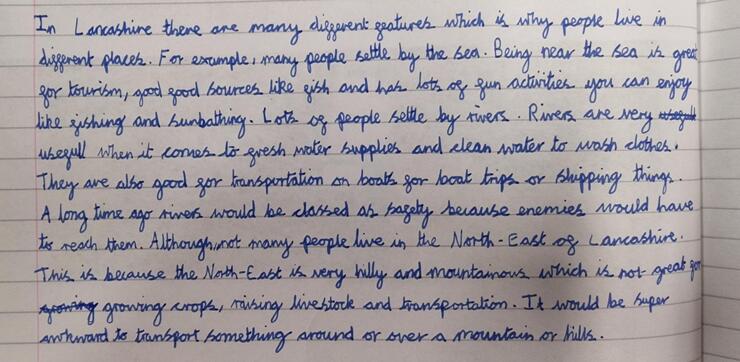 In Lancashire there are many different features which is why people live in
different places. For example, many people settle by the sea. Being near the sea is great
for tourism, good good sources like fish and has lots of fun activities you can enjoy
like fishing and sunbathing. Lots of people settle by rivers. Rivers are very
usefull when it comes to fresh water supplies and clean water to wash clothes.
They are also good for transportation on boats for boat trips or shipping things.
A long time ago rivers would be classed as safety because enemies would have
to reach them. Although, not many people live in the North-East of Lancashire.
This is because the North-East is very hilly and mountainous which is not great for
growing growing crops, raising livestock and transportation. It would be super
awkward to transport something around or over a mountain or hills.